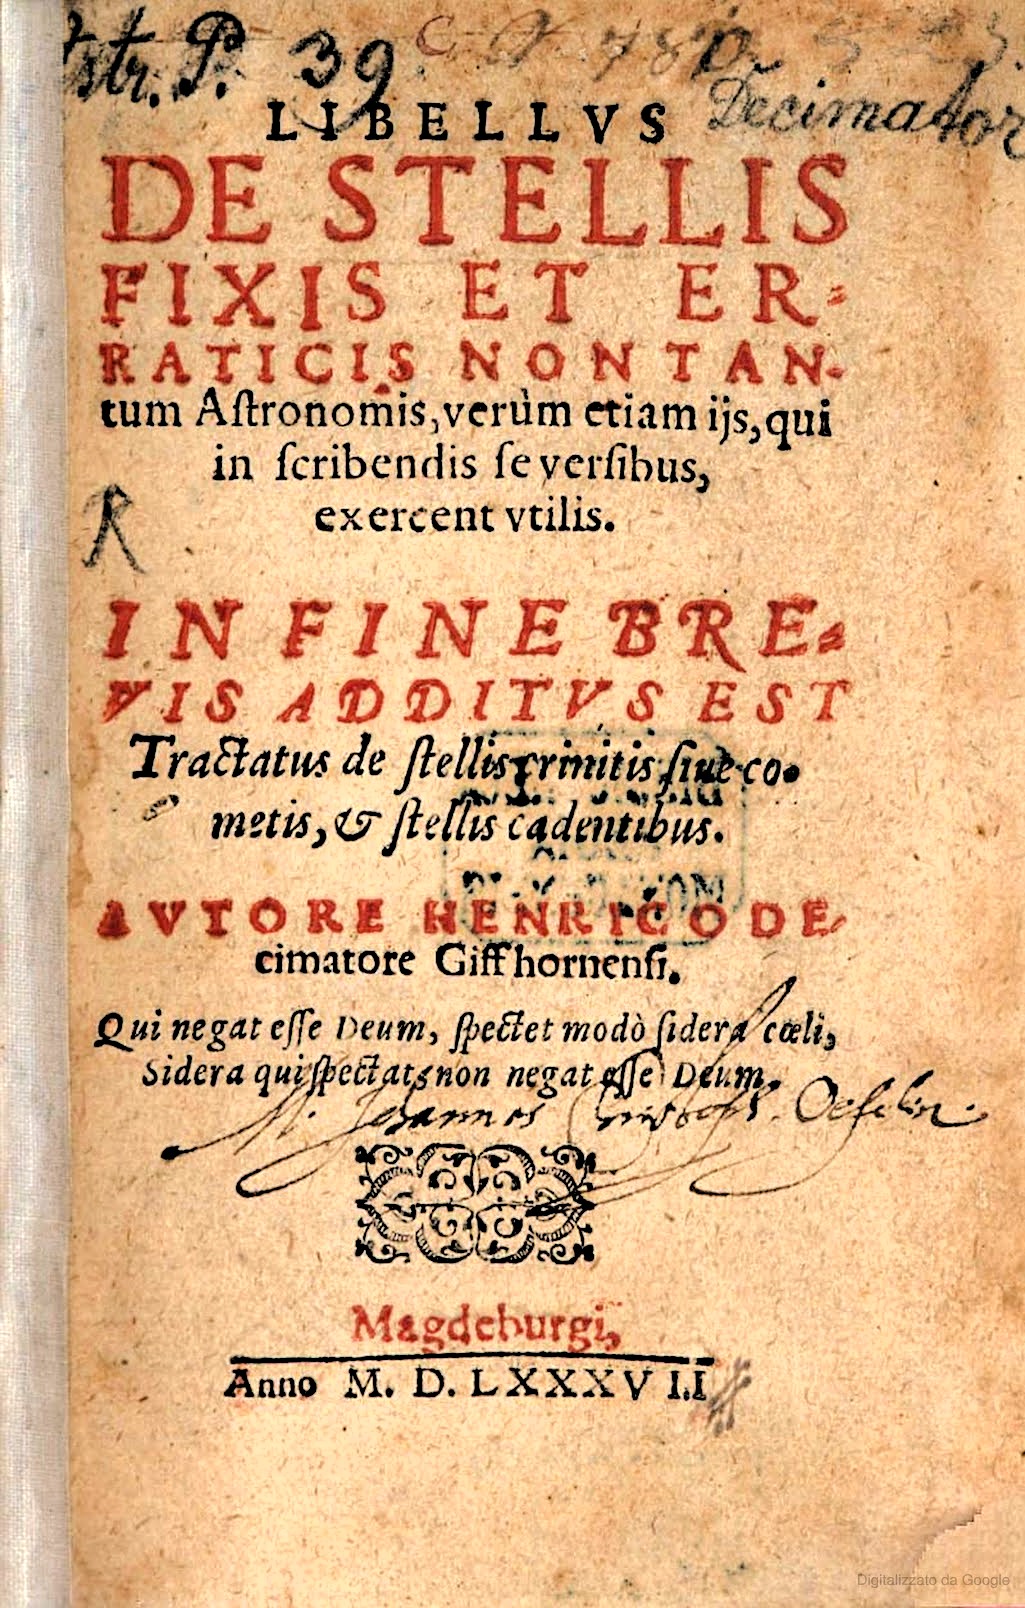 Astr. P. 39
Decimator
LIBELLVS
DE STELLIS
FIXIS ET ER-
RATICIS NON TAN-
tum Aſtronomis, verùm etiam ijs, qui
in ſcribendis ſe verſibus,
exercent vtilis.
R
IN FINE BRE-
VIS ADDITVS EST
Tractatus de ſtellis crinitis ſiue co-
metis, & ſtellis cadentibus.
AVTORE HENRICO DE-
cimatore Giffhornenſi.
Qui negat eſſe Deum, ſpectet modò ſidera cœli,
Sidera qui ſpectat, non negat eſſe Deum.
M. Johannes
Magdeburgi,
Anno M. D. LXXXVII
Digitalizzato da Google